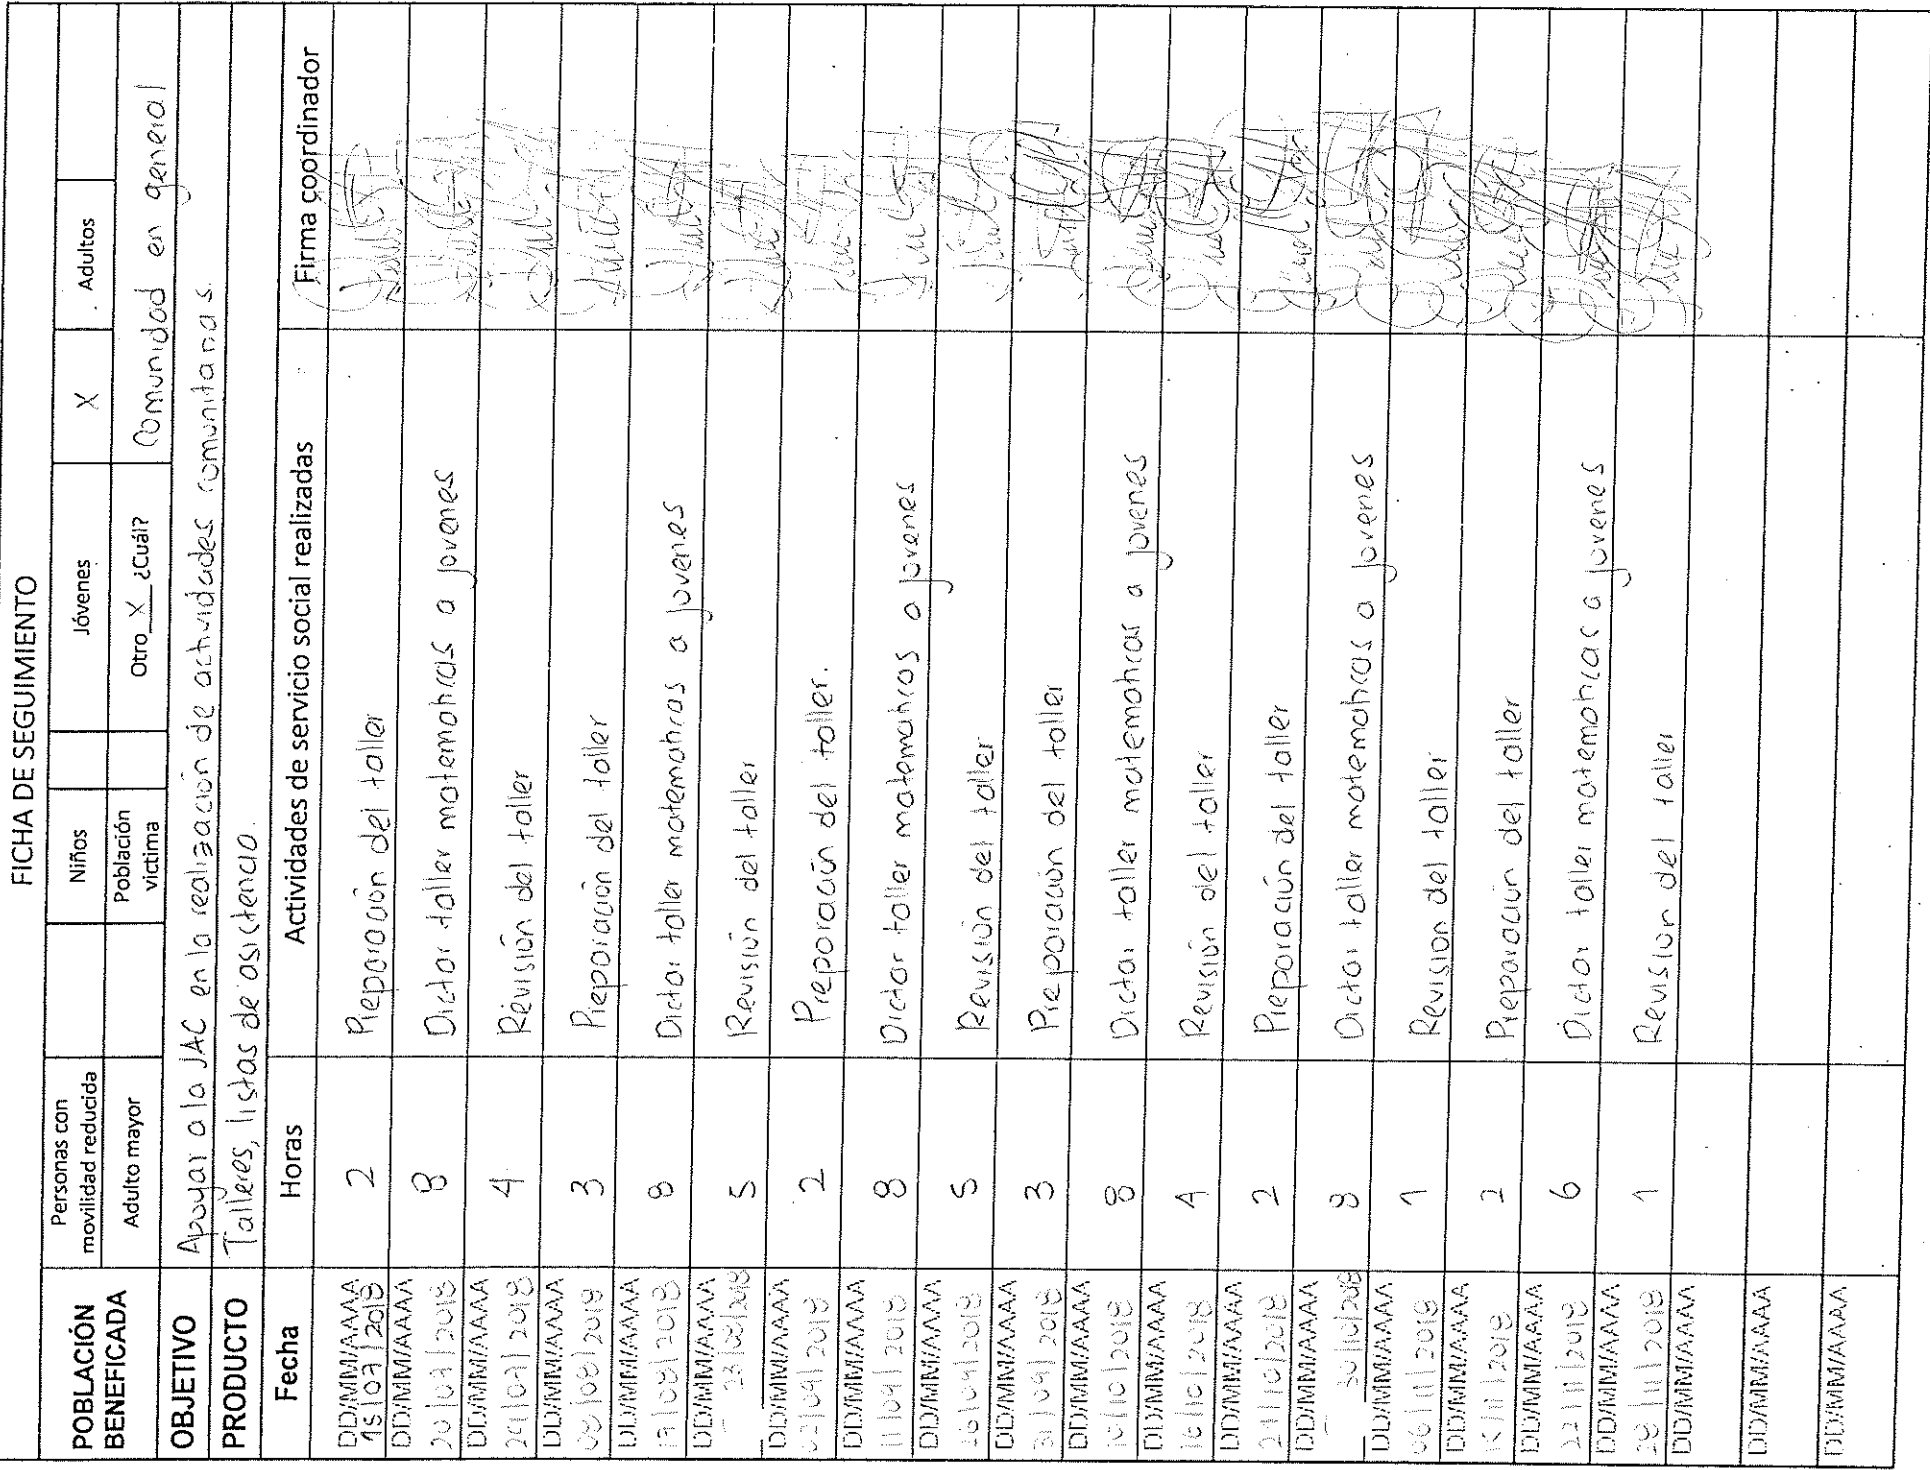 FICHA DE SEGUIMIENTO
POBLACIÓN BENEFICADA
Personas con movilidad reducida
Niños
Jóvenes X
Adultos
Adulto mayor
Población victima
Otro X ¿Cuál? Comunidad en general
OBJETIVO Apoyar a la JAC en la realización de actividades comunitarias.
PRODUCTO Talleres, listas de asistencia.
Fecha Horas Actividades de servicio social realizadas Firma coordinador
DD/MM/AAAA 15/07/2018 2 Preparación del taller
DD/MM/AAAA 20/07/2018 8 Dictar taller matematicas a jovenes
DD/MM/AAAA 29/07/2018 4 Revisión del taller
DD/MM/AAAA 08/08/2018 3 Preparación del taller
DD/MM/AAAA 17/08/2018 8 Dictar taller matematicas a jovenes
DD/MM/AAAA 23/08/2018 5 Revisión del taller
DD/MM/AAAA 02/09/2018 2 Preparación del taller.
DD/MM/AAAA 11/09/2018 8 Dictar taller matematicas a jovenes
DD/MM/AAAA 5 Revisión del taller
DD/MM/AAAA 31/09/2018 3 Preparación del taller
DD/MM/AAAA 8 Dictar taller matematicas a jovenes
DD/MM/AAAA 16/10/2018 4 Revisión del taller
DD/MM/AAAA 2 Preparación del taller
DD/MM/AAAA 30/10/2018 8 Dictar taller matematicas a jovenes
DD/MM/AAAA 06/11/2018 1 Revision del taller
DD/MM/AAAA 15/11/2018 2 Preparación del taller
DD/MM/AAAA 22/11/2018 6 Dictar taller matematicas a jovenes
DD/MM/AAAA 28/11/2018 1 Revision del taller
DD/MM/AAAA
DD/MM/AAAA
DD/MM/AAAA